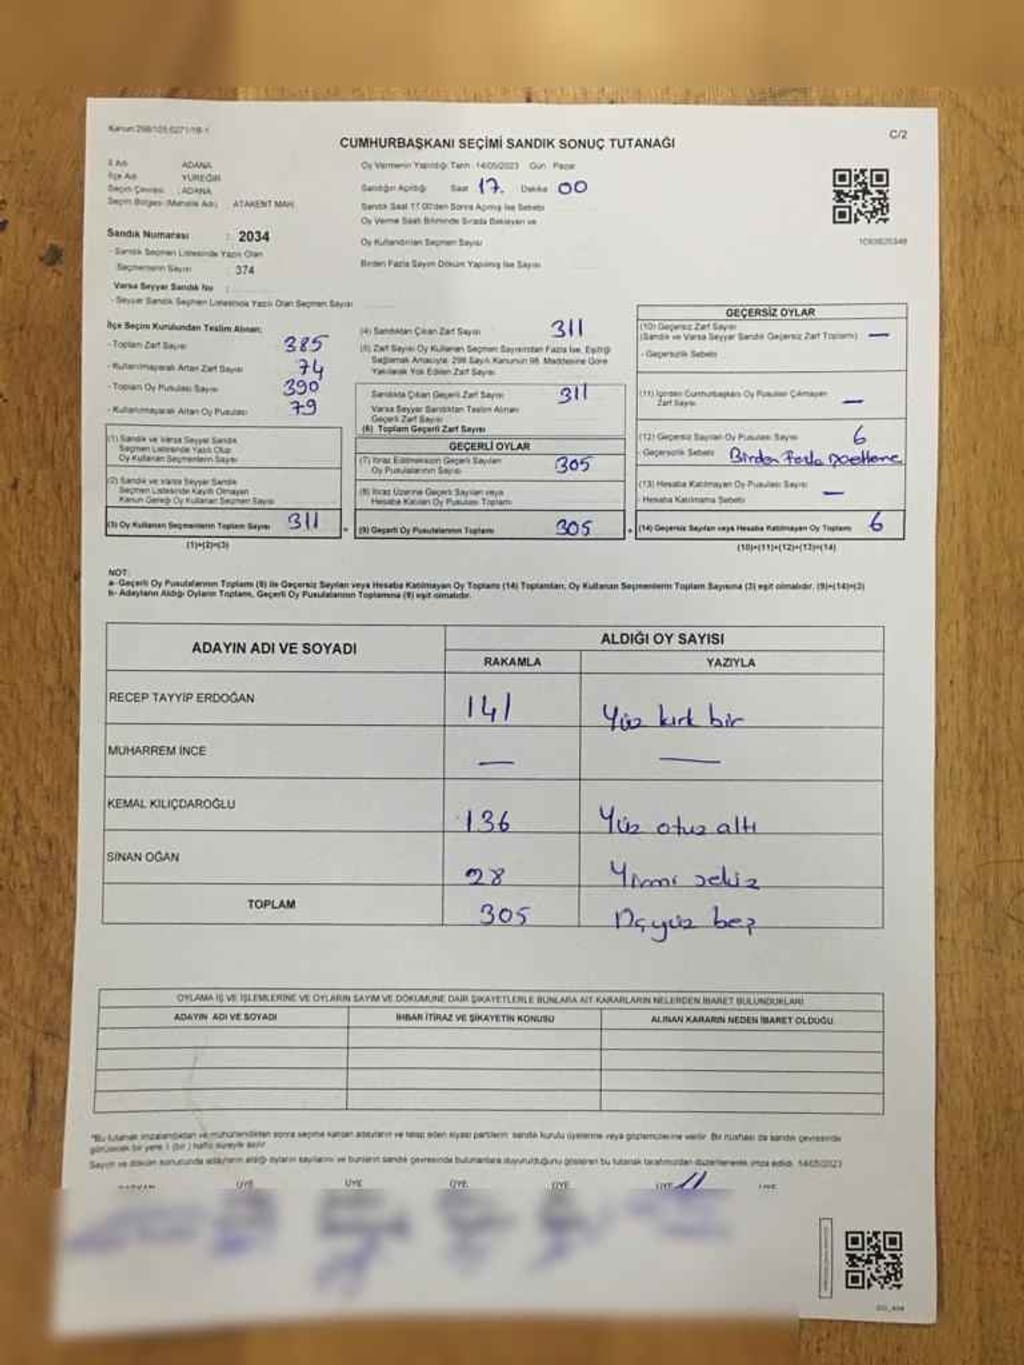 CUMHURBAŞKANI SEÇİMİ SANDIK SONUÇ TUTANAĞI
C/2
İl Adı ADANA
İlçe Adı YÜREĞİR
Seçim Çevresi : ADANA
Seçim Bölgesi (Mahalle Adı) : ATAKENT MAH.
Sandık Numarası : 2034
- Sandık Seçmen Listesinde Yazılı Olan
Seçmenlerin Sayısı : 374
Varsa Seyyar Sandık No :
- Seyyar Sandık Seçmen Listesinde Yazılı Olan Seçmen Sayısı
Oy Vermenin Yapıldığı Tarih : 14/05/2023 Gün : Pazar
Sandığın Açıldığı Saat 17. Dakika 00
Sandık Saat 17.00'den Sonra Açılmış İse Sebebi
Oy Verme Saati Bitiminde Sırada Bekleyen ve
Oy Kullandırılan Seçmen Sayısı
Birden Fazla Sayım Döküm Yapılmış İse Sayısı
İlçe Seçim Kurulundan Teslim Alınan:
- Toplam Zarf Sayısı 385
- Kullanılmayarak Artan Zarf Sayısı 74
- Toplam Oy Pusulası Sayısı 390
- Kullanılmayarak Artan Oy Pusulası 79
(1) Sandık ve Varsa Seyyar Sandık
Seçmen Listesinde Yazılı Olup
Oy Kullanan Seçmenlerin Sayısı
(2) Sandık ve Varsa Seyyar Sandık
Seçmen Listesinde Kayıtlı Olmayan
Kanun Gereği Oy Kullanan Seçmen Sayısı
(3) Oy Kullanan Seçmenlerin Toplam Sayısı 311
(1)+(2)=(3)
(4) Sandıktan Çıkan Zarf Sayısı 311
(5) Zarf Sayısı Oy Kullanan Seçmen Sayısından Fazla İse, Eşitliği
Sağlamak Amacıyla, 298 Sayılı Kanunun 98. Maddesine Göre
Yakılarak Yok Edilen Zarf Sayısı
Sandıkta Çıkan Geçerli Zarf Sayısı 311
Varsa Seyyar Sandıktan Teslim Alınan
Geçerli Zarf Sayısı
(6) Toplam Geçerli Zarf Sayısı
GEÇERLİ OYLAR
(7) İtiraz Edilmeksizin Geçerli Sayılan
Oy Pusulalarının Sayısı 305
(8) İtiraz Üzerine Geçerli Sayılan veya
Hesaba Katılan Oy Pusulası Toplamı
(9) Geçerli Oy Pusulalarının Toplamı 305
GEÇERSİZ OYLAR
(10) Geçersiz Zarf Sayısı
(Sandık ve Varsa Seyyar Sandık Geçersiz Zarf Toplamı) —
- Geçersizlik Sebebi
(11) İçinden Cumhurbaşkanı Oy Pusulası Çıkmayan
Zarf Sayısı —
(12) Geçersiz Sayılan Oy Pusulası Sayısı 6
- Geçersizlik Sebebi Birden fazla
(13) Hesaba Katılmayan Oy Pusulası Sayısı —
- Hesaba Katılmama Sebebi
(14) Geçersiz Sayılan veya Hesaba Katılmayan Oy Toplamı 6
(10)+(11)+(12)+(13)=(14)
NOT:
a- Geçerli Oy Pusulalarının Toplamı (9) ile Geçersiz Sayılan veya Hesaba Katılmayan Oy Toplamı (14) Toplamları, Oy Kullanan Seçmenlerin Toplam Sayısına (3) eşit olmalıdır. (9)+(14)=(3)
b- Adayların Aldığı Oyların Toplamı, Geçerli Oy Pusulalarının Toplamına (9) eşit olmalıdır.
ADAYIN ADI VE SOYADI ALDIĞI OY SAYISI
RAKAMLA YAZIYLA
RECEP TAYYİP ERDOĞAN 141 Yüz kırk bir
MUHARREM İNCE — —
KEMAL KILIÇDAROĞLU 136 Yüz otuz altı
SİNAN OĞAN 28 Yirmi sekiz
TOPLAM 305 Üçyüz beş
OYLAMA İŞ VE İŞLEMLERİNE VE OYLARIN SAYIM VE DÖKÜMÜNE DAİR ŞİKAYETLERLE BUNLARA AİT KARARLARIN NELERDEN İBARET BULUNDUKLARI
ADAYIN ADI VE SOYADI İHBAR İTİRAZ VE ŞİKAYETİN KONUSU ALINAN KARARIN NEDEN İBARET OLDUĞU
*Bu tutanak imzalandıktan ve mühürlendikten sonra seçime katılan adayların ve talep eden siyasi partilerin sandık kurulu üyelerine veya gözlemcilerine verilir. Bir nüshası da sandık çevresinde
görülecek bir yere 1 (bir) hafta süreyle asılır.
Sayım ve döküm sonucunda adayların aldığı oyların sayılarını ve bunların sandık çevresinde bulunanlara duyurulduğunu gösteren bu tutanak tarafımızdan düzenlenerek imza edildi. 14/05/2023
BAŞKAN ÜYE ÜYE ÜYE ÜYE ÜYE ÜYE